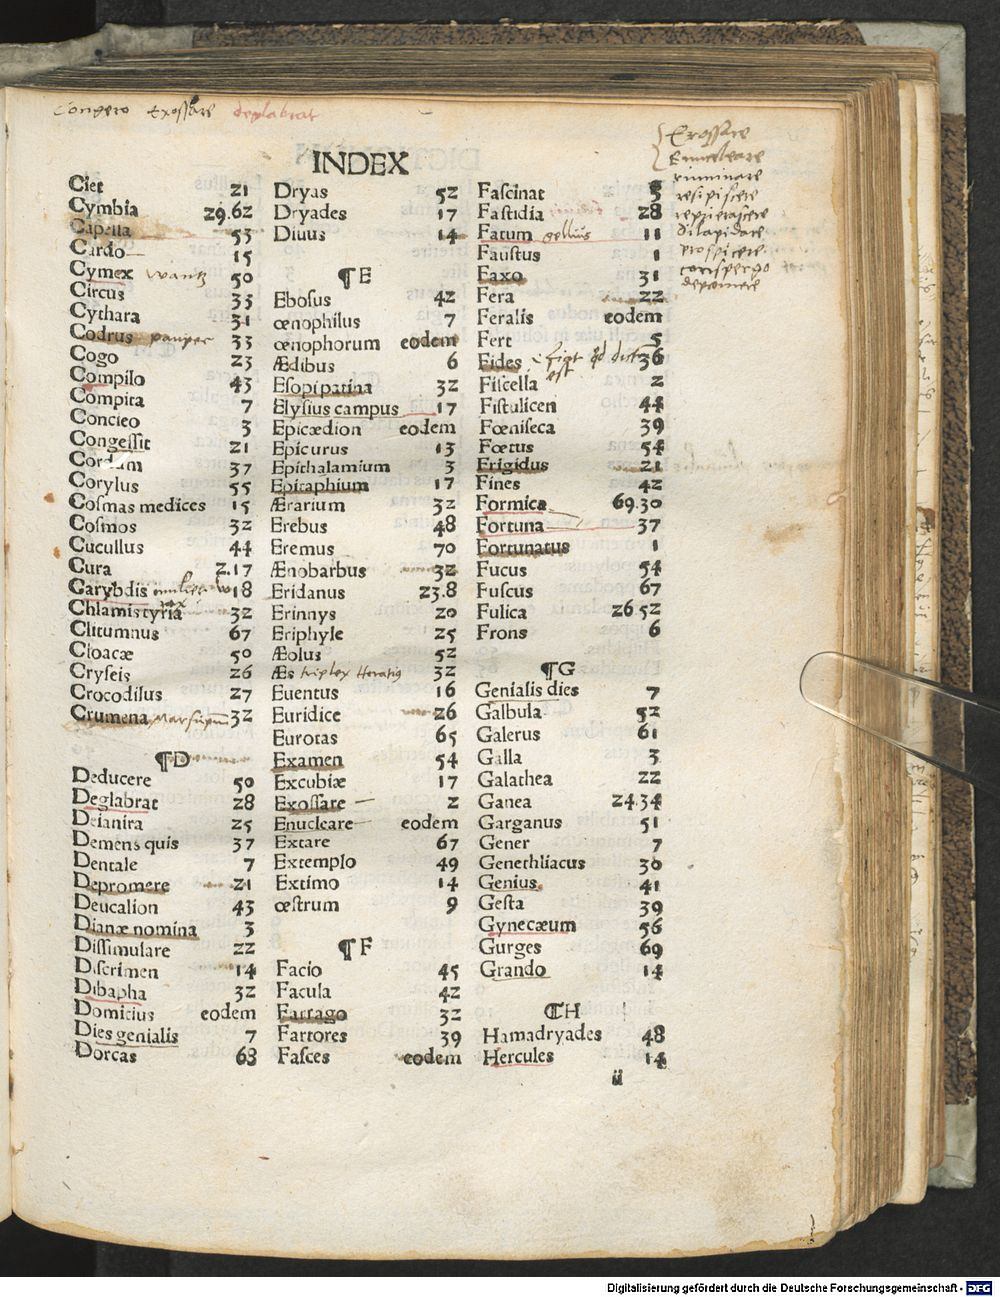 Congero Exossare deglabrat
INDEX
Ciet 21
Cymbia 29.62
Capella 53
Cardo 15
Cymex wantz 50
Circus 35
Cythara 31
Codrus pauper 33
Cogo 23
Compilo 43
Compita 7
Concieo 3
Congessit 21
Cordum 37
Corylus 55
Cosmas medices 15
Cosmos 32
Cucullus 44
Cura 2.17
Carybdis 18
Chlamistyria 32
Clitumnus 67
Cloacæ 50
Cryseis 26
Crocodilus 27
Crumena Marsupium 32
¶D
Deducere 50
Deglabrat 28
Deianira 25
Demens quis 37
Dentale 7
Depromere 21
Deucalion 43
Dianæ nomina 3
Dissimulare 22
Discrimen 14
Dibapha 32
Domicius eodem
Dies genialis 7
Dorcas 63
Dryas 52
Dryades 17
Diuus 14
¶E
Ebosus 42
œnophilus 7
œnophorum eodem
Ædibus 6
Esopi patina 32
Elysius campus 17
Epicædion eodem
Epicurus 13
Epithalamium 3
Epitaphium 17
Ærarium 32
Erebus 48
Eremus 70
Ænobarbus 32
Eridanus 23.8
Erinnys 20
Eriphyle 25
Æolus 52
Æs triplex Horatius 32
Euentus 16
Euridice 26
Eurotas 65
Examen 54
Excubiæ 17
Exossare 2
Enucleare eodem
Extare 67
Extemplo 49
Extimo 14
œstrum 9
¶F
Facio 45
Facula 42
Farrago 32
Fartores 39
Fasces eodem
Fascinat 5
Fastidia 28
Fatum gellius 11
Faustus 1
Faxo 31
Fera 22
Feralis eodem
Fert 5
Fides fiat qd dictum est 36
Fiscella 2
Fistulicen 44
Fœniseca 39
Fœtus 54
Frigidus 21
Fines 42
Formica 69.30
Fortuna 37
Fortunatus 1
Fucus 54
Fuscus 67
Fulica 26.52
Frons 6
¶G
Genialis dies 7
Galbula 52
Galerus 61
Galla 3
Galathea 22
Ganea 24.34
Garganus 51
Gener 7
Genethliacus 30
Genius 41
Gesta 39
Gynecæum 56
Gurges 69
Grando 14
¶H
Hamadryades 48
Hercules 14
ii
Exossare
Enucleare
ruminare
resipiscere
repuerascere
dilapidare
prospicere
conspergo
depromere
Digitalisierung gefördert durch die Deutsche Forschungsgemeinschaft - DFG